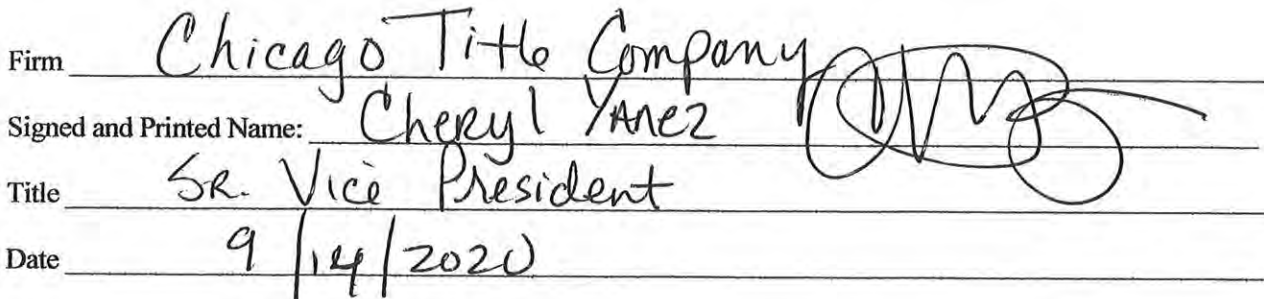 Firm Chicago Title Company
Signed and Printed Name: Cheryl Yanez
Title SR. Vice President
Date 9/14/2020